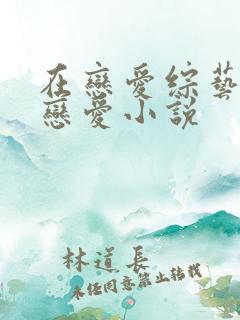 在戀愛綜藝
戀愛小說
林道長
未經同意禁止轉載